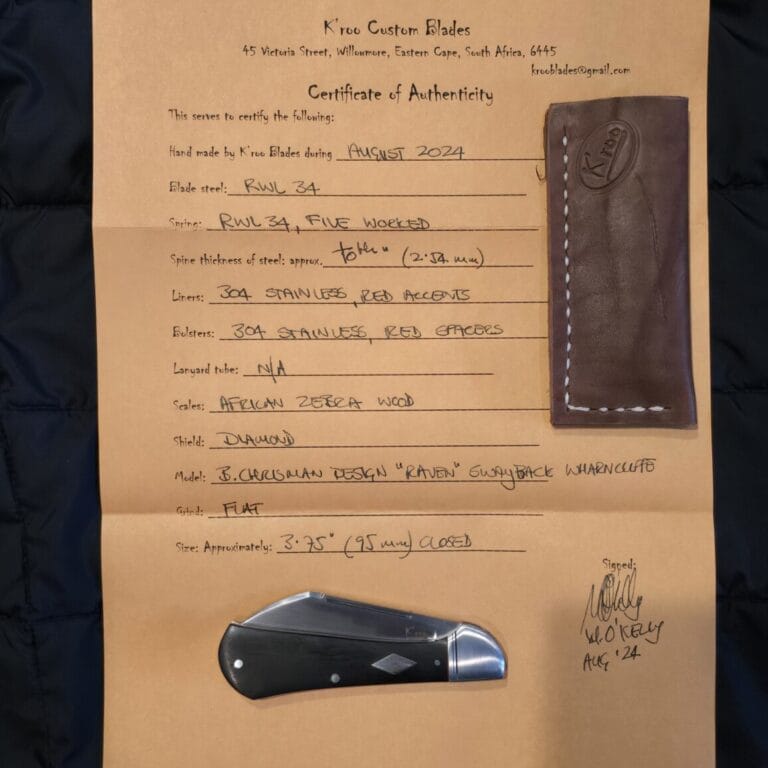 K'roo Custom Blades
45 Victoria Street, Willowmore, Eastern Cape, South Africa, 6445
krooblades@gmail.com
Certificate of Authenticity
This serves to certify the following:
Hand made by K'roo Blades during AUGUST 2024
Blade steel: RWL 34
Spring: RWL 34, FILE WORKED
Spine thickness of steel: approx. (2.54 mm)
Liners: 304 STAINLESS, RED ACCENTS
Bolsters: 304 STAINLESS, RED SPACERS
Lanyard tube: N/A
Scales: AFRICAN ZEBRA WOOD
Shield: DIAMOND
Model: B. CHRISMAN DESIGN "RAVEN" SWAYBACK WHARNCLIFFE
Grind: FLAT
Size: Approximately: 3.75" (95 mm) CLOSED
Signed:
M. O'KELLY
AUG '24
K'roo
K'roo